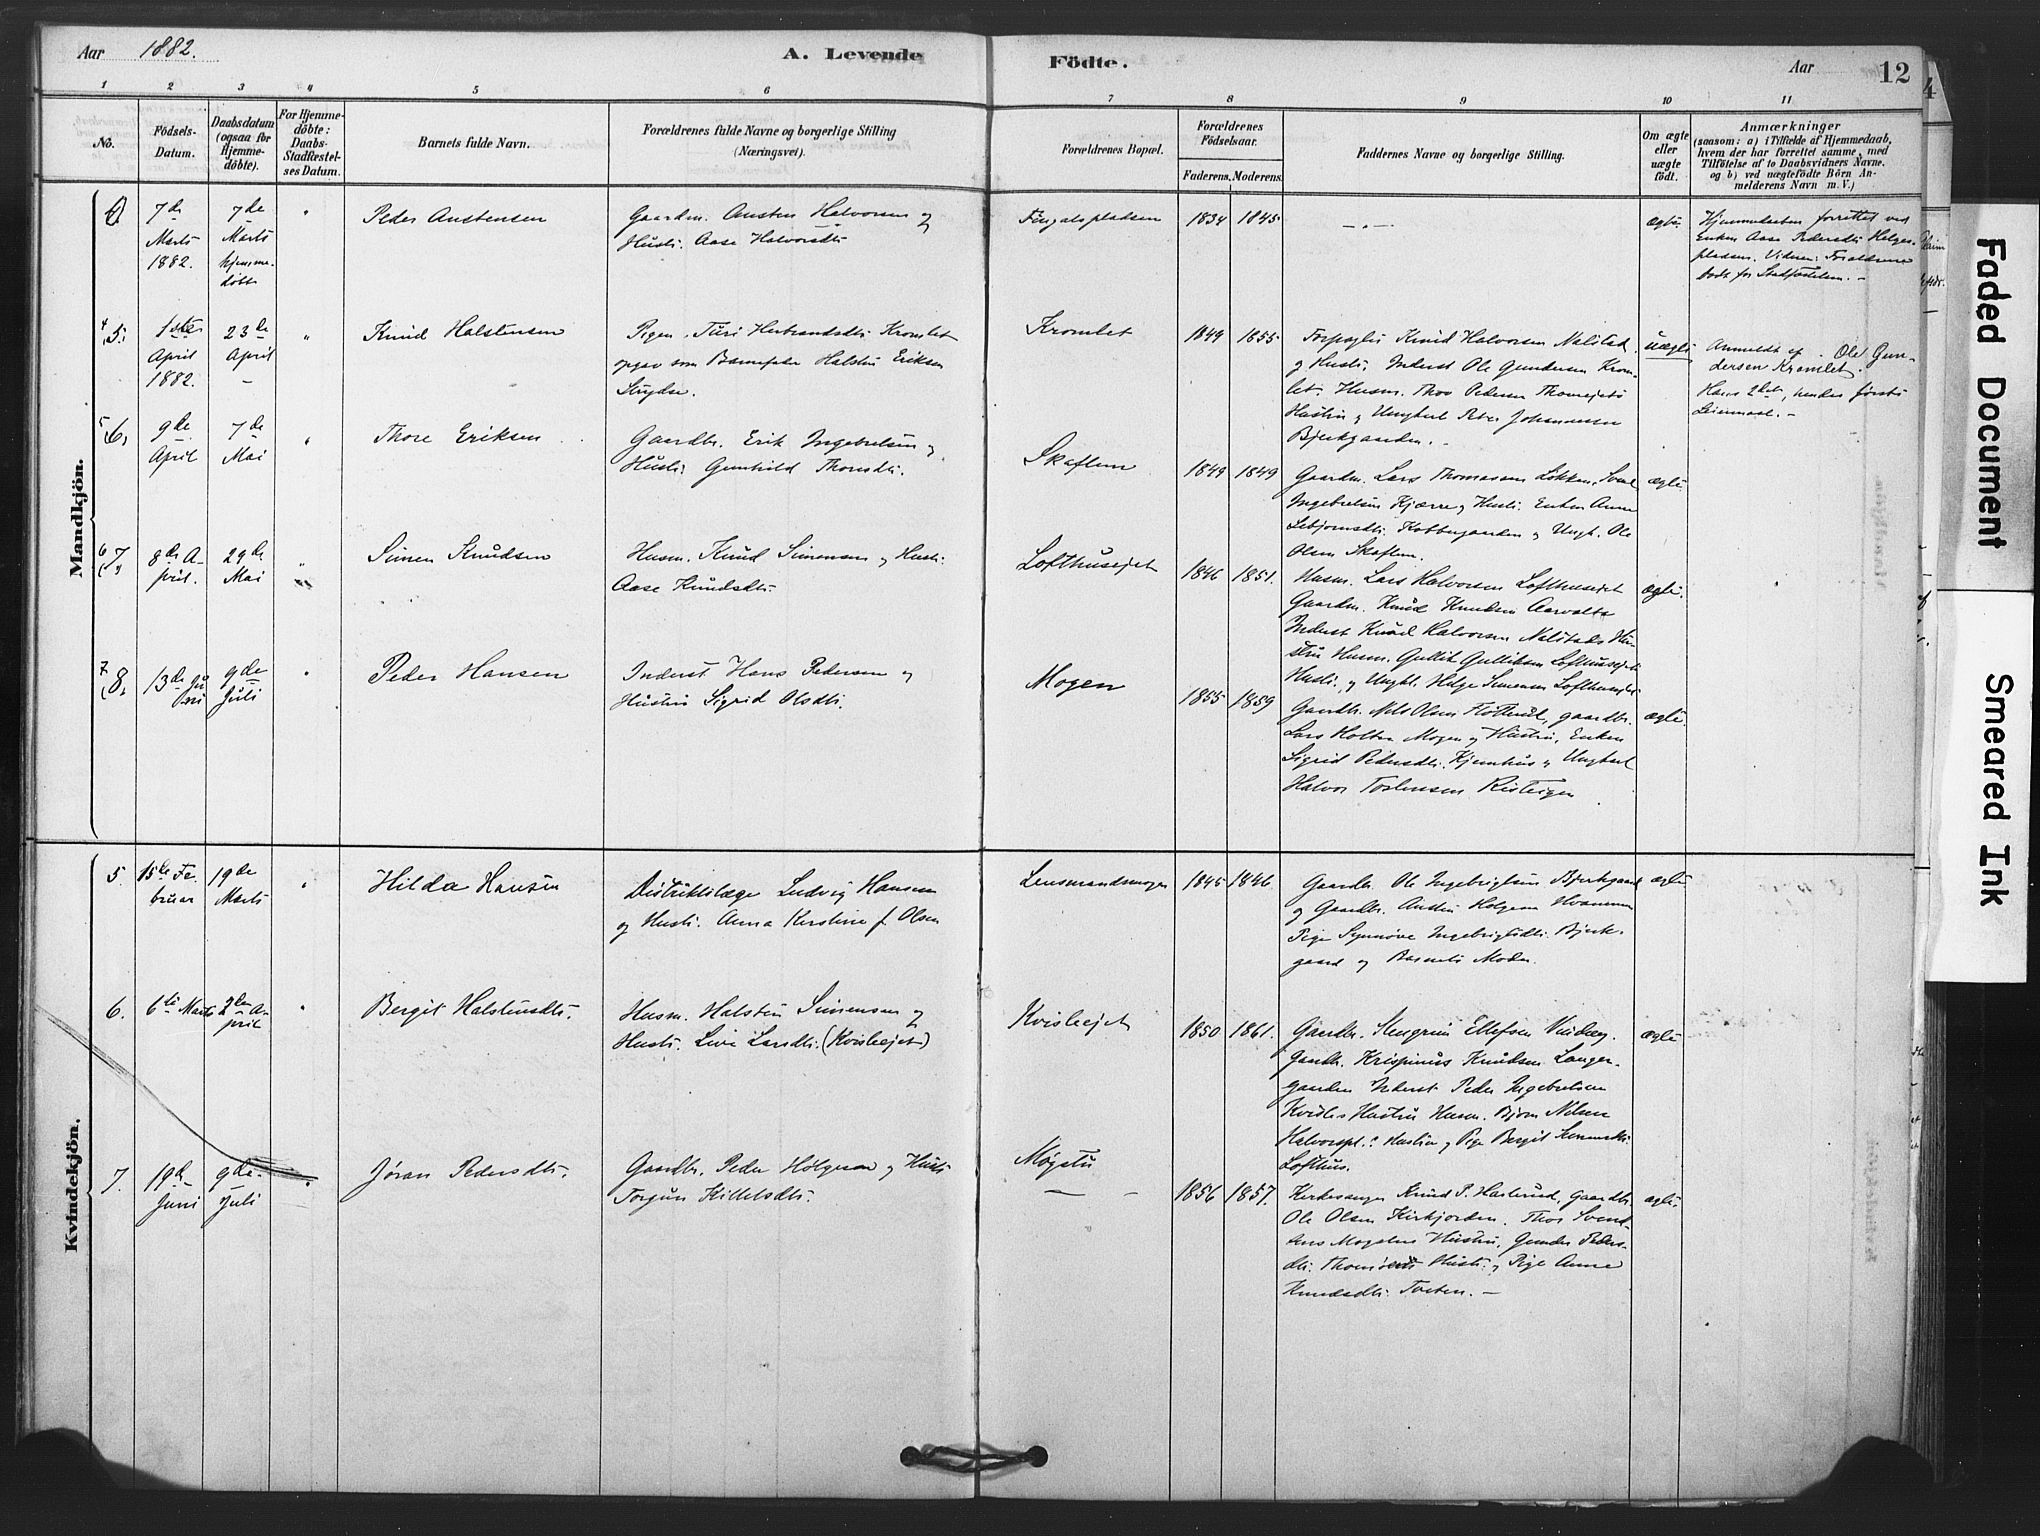 Aar 1882.
A. Levende
Födte.
Aar
12
1 2 3 4 5 6
7 8 9 10 11
No.
Födsels-
Datum.
Daabsdatum
(ogsaa for
Hjemme-
döbte).
For Hjemme-
döbte:
Daabs-
Stadfæstel-
ses Datum.
Barnets fulde Navn.
Forældrenes fulde Navne og borgerlige Stilling
(Næringsvei).
Forældrenes Bopæl.
Forældrenes
Födselsaar.
Faderens. Moderens.
Faddernes Navne og borgerlige Stilling.
Om ægte
eller
uægte
födt.
Anmærkninger
(saasom: a) i Tilfælde af Hjemmedaab,
hvem der har forrettet samme, med
Tilföielse af to Daabsvidners Navne,
og b) ved uægtefödte Börn An-
melderens Navn m. V.)
Mandkjön.
7de
Marts
1882.
7de
Marts
hjemme-
döbt
Peder Austensen
Gaardm. Austen Halvorsen og
Hustr. Aase Halvorsdtr.
Fingalspladsen
1834 1845
ægte
Hjemmedaaben forrettet ved
Enken Aase Pedersdtr. Helges-
pladsen. Vidner: Forældrene
4 5.
1ste
April
1882.
23de
April
Knud Halstensen
Pigen Turi Herbrandsdtr. Kromlet
opgav som Barnefader Halsten Eriksen
Kromlet
1849 1855
Knud Halvorsen Nalstad
og Hustr. Inderst Ole Gundersen Krom-
let. Husm. Thov Pedersen
Hustru og Ungkarl Peder Johannessen
Bjerkgaarden.
uægte
Anmeldt af Ole Gun-
dersen Kromlet.
Hans 2det, hendes første
Leiermaal.
5 6.
9de
April
7de
Mai
Thore Eriksen
Gaardbr. Erik Ingebretsen og
Hustr. Gunhild Thorsdtr.
Skaflem
1849 1849
Gaardm. Lars Thomassen Løkken, Svend
Ingebretsen Kjærre og Hustr. Enken Anne
og Ungk. Ole
Olsen Skaflem.
ægte
6 7.
8de A-
pril.
29de
Mai
Simen Knudsen
Husm. Knud Simensen og Hustr.
Aase Knudsdtr.
Lofthusejet
1846 1851.
Husm. Lars Halvorsen Lofthusejet
Gaardm. Knud Knudsen
Inderst Knud Halvorsen Nalstads Hu-
stru Husm. Gullik Gulliksen Lofthusejets
Hustr. og Ungk. Helge Simensen Lofthusejet
ægte.
7 8.
13de Ju-
ni
9de
Juli
Peder Hansen
Inderst Hans Pedersen og
Hustru Sigrid Olsdtr.
Mogen
1855 1859
Gaardbr. Nels Olsen Fløttrud, gaardbr.
Lars Holter Mogen og Hustru, Enken
Sigrid Pedersdtr. Kjemhus og Ungkarl
Halvor Torstensen
ægte.
Kvindekjön.
5.
15de Fe-
bruar
19de
Marts
Hilda Hansen
Distriktslæge Ludvig Hansen
og Hustr. Anna Kerstine f. Olsen
Lensmandsmogen
1845 1846.
Gaardbr. Ole Ingebrigtsen Bjerkgaard
og Gaardbr. Austen Helgesen
Pige Synnøve Ingebrigtsdtr. Bjerk-
gaard og Barnets Moder.
ægte
6.
6te Marts
2den A-
pril
Bergit Halstensdtr.
Husm. Halsten Simensen og
Hustr. Live Larsdtr. (Kvisleejet)
Kvisleejet
1850 1861.
Gaardbr. Stengrim Ellefsen
Gaardbr. Krispinus Knudsen Langer-
gaarden Inderst Peder Ingebretsen
Kvisles Hustru Husm. Bjørn Nilsen
Halvorspl. Hustru og Pige Bergit Simensdtr.
Lofthus.
ægte
7.
19de
Juni
9de
Juli
Jøran Pedersdtr.
Gaardbr. Peder Helgesen og Hustr.
Torgun Kittelsdtr.
1856 1857.
Kirkesanger Knud P. Haslerud, Gaardbr.
Ole Olsen Kirkjorden. Thor Svend-
sens Mogelens Hustru, Gunder Peders-
dtr. Hustr. og Pige Anne
Knudsdtr. Toeten.
ægte.
Faded Document
Smeared Ink